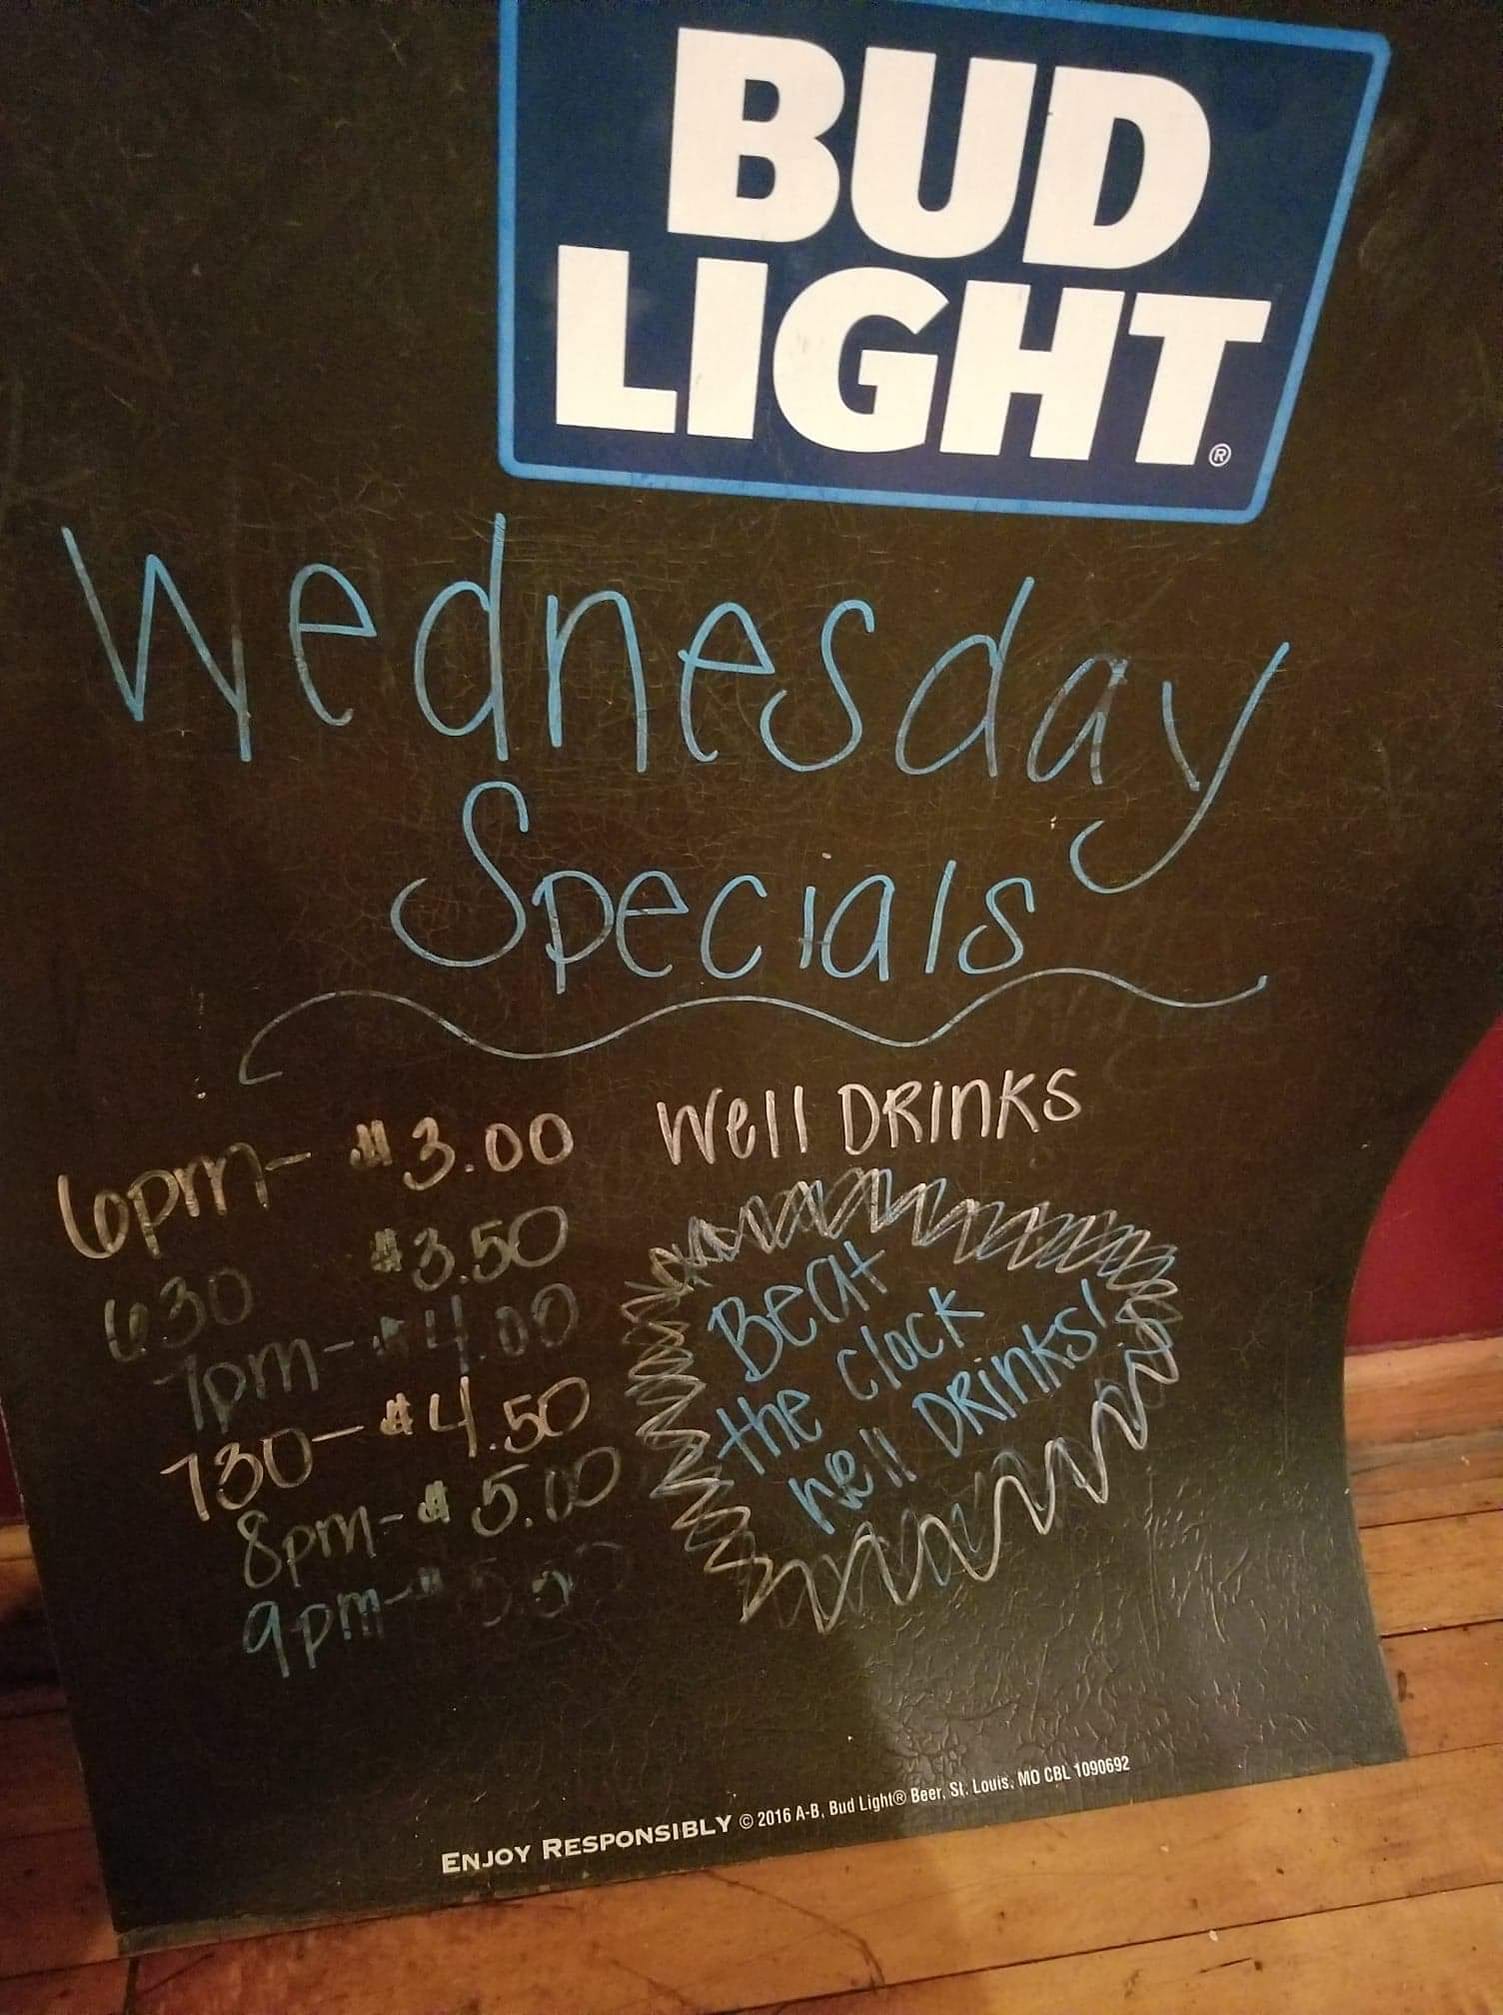 BUD
LIGHT®
Wednesday
Specials
6pm- $3.00 Well DRinKS
630 $3.50
7pm- $4.00
730- $4.50
8pm- $5.00
9pm- $
Beat
the Clock
Well DRinks!
ENJOY RESPONSIBLY © 2016 A-B, Bud Light® Beer, St. Louis, MO CBL 1090692